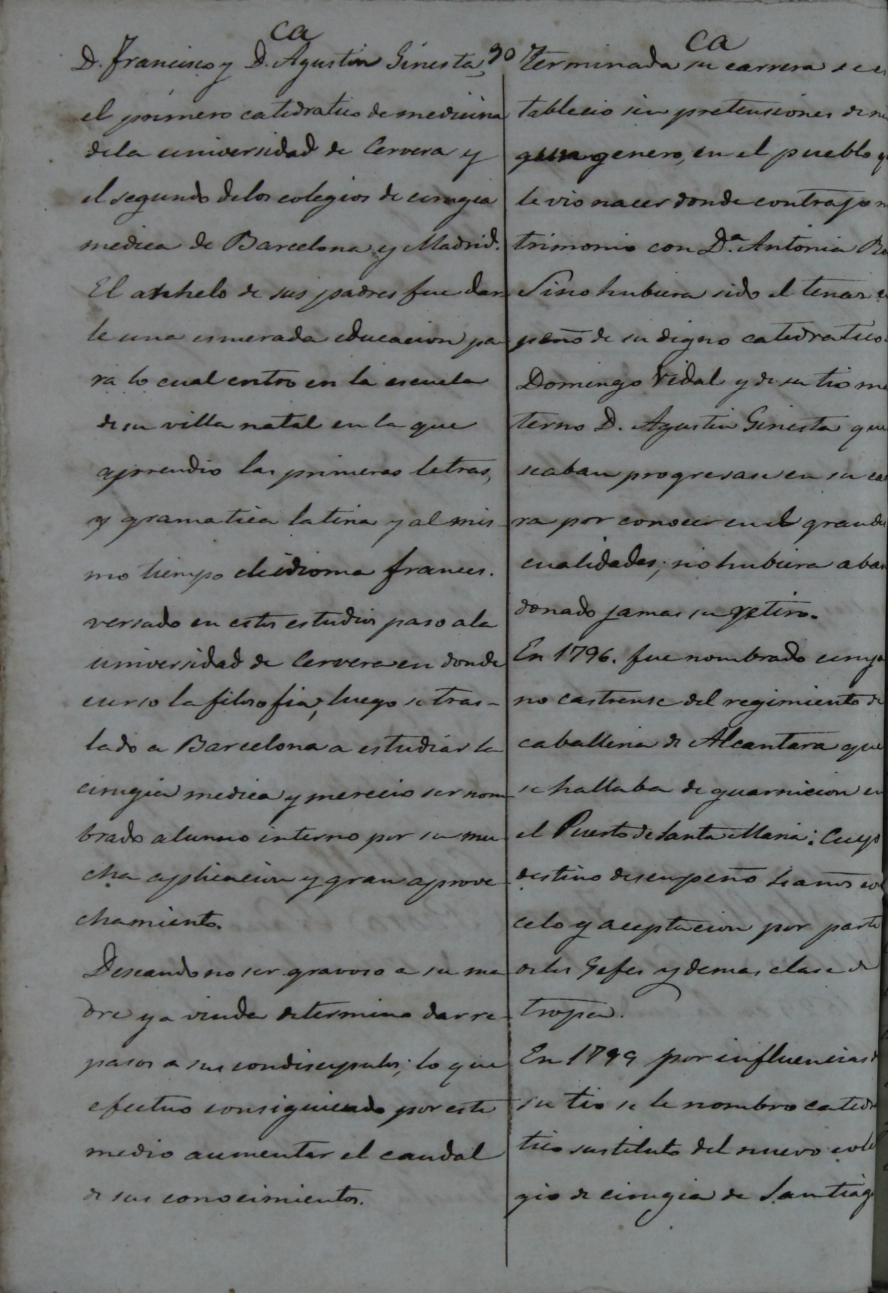 ca
D. Francisco y D. Agustin Ginesta,
el primero catedratico de medicina
dela universidad de Cervera y
el segundo delos colegios de cirugia
medica de Barcelona y Madrid.
El anhelo de sus padres fue dar
le una esmerada educacion pa
ra lo cual entro en la escuela
de su villa natal en la que
aprendio las primeras letras,
y gramatica latina y al mis-
mo tiempo el idioma frances.
versado en estos estudios paso ala
universidad de Cervera en donde
curso la filosofia, luego se tras-
lado a Barcelona a estudiar la
cirugia medica y merecio ser nom
brado alumno interno por su mu
cha aplicacion y gran aprove
chamiento.
Deseando no ser gravoso a su ma
dre ya viuda determina dar re-
pasos a sus condiscipulos; lo que
efectuo consiguiendo por este
medio aumentar el caudal
de sus conocimientos.
ca
Terminada su carrera se es
tablecio sin pretensiones de ni
genero, en el pueblo q
le vio nacer donde contrajo m
trimonio con Dª. Antonia
Sino hubiera sido el tenaz e
peño de su digno catedratico
Domingo Vidal y de su tio ma
terno D. Agustin Ginesta que
seaban progresase en su ca
ra por conocer en el grandes
cualidades; no hubiera aban
donado jamas su retiro.
En 1796. fue nombrado ciruja
no castrense del regimiento de
caballeria de Alcantara que
se hallaba de guarnicion en
el Puerto de Santa Maria: Cuyo
destino desempeño años con
celo y aceptacion por parte
delos Gefes y demas clase de
tropa.
En 1799 por influencias d
su tio se le nombro catedra
tico sustituto del nuevo cole
gio de cirugia de Santiag